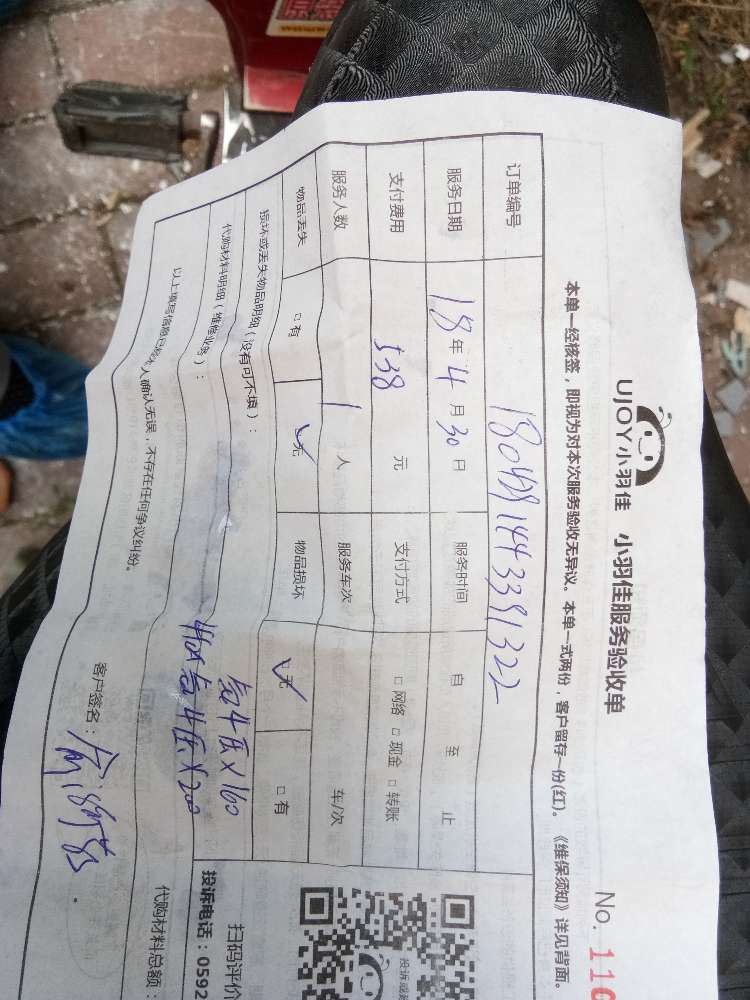 UJOY小羽佳 小羽佳服务验收单
No. 110
本单一经核签，即视为对本次服务验收无异议。本单一式两份，客户留存一份(红)。《维保须知》详见背面。
订单编号
服务日期 18年4月30日 服务时间 自 至 止
支付费用 538 元 支付方式 □网络 □现金 □转账
服务人数 1 人 服务车次 车/次
物品丢失 □有 无 物品损坏 无 □有
损坏或丢失物品明细（没有可不填）：
代购材料明细（维修业务）：
代购材料总额：
以上填写信息已经本人确认无误，不存在任何争议纠纷。
客户签名：
扫码评价
投诉电话：0592